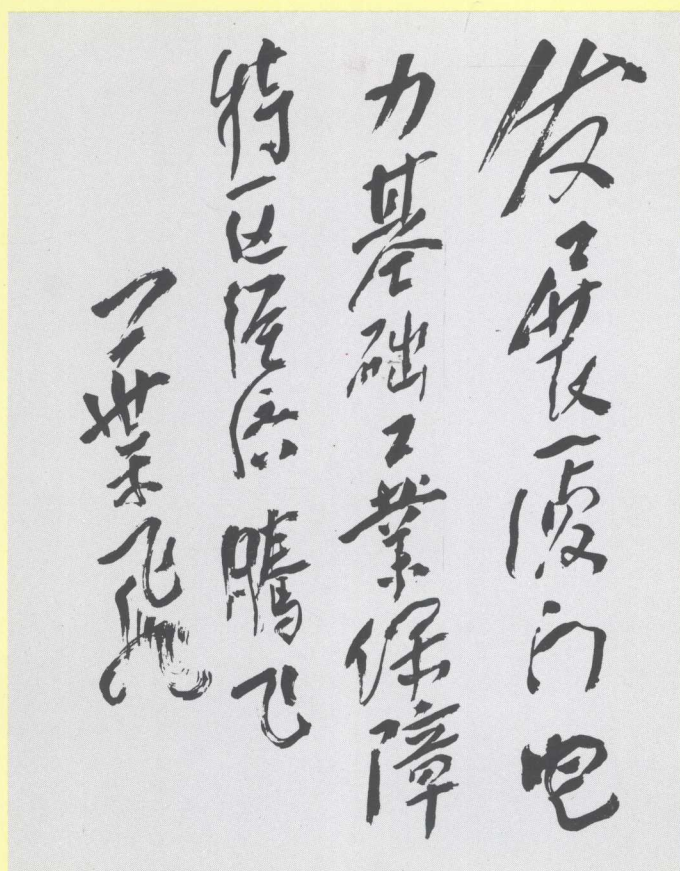 发展厦门电
力基础工业保障
特区经济腾飞
叶飞